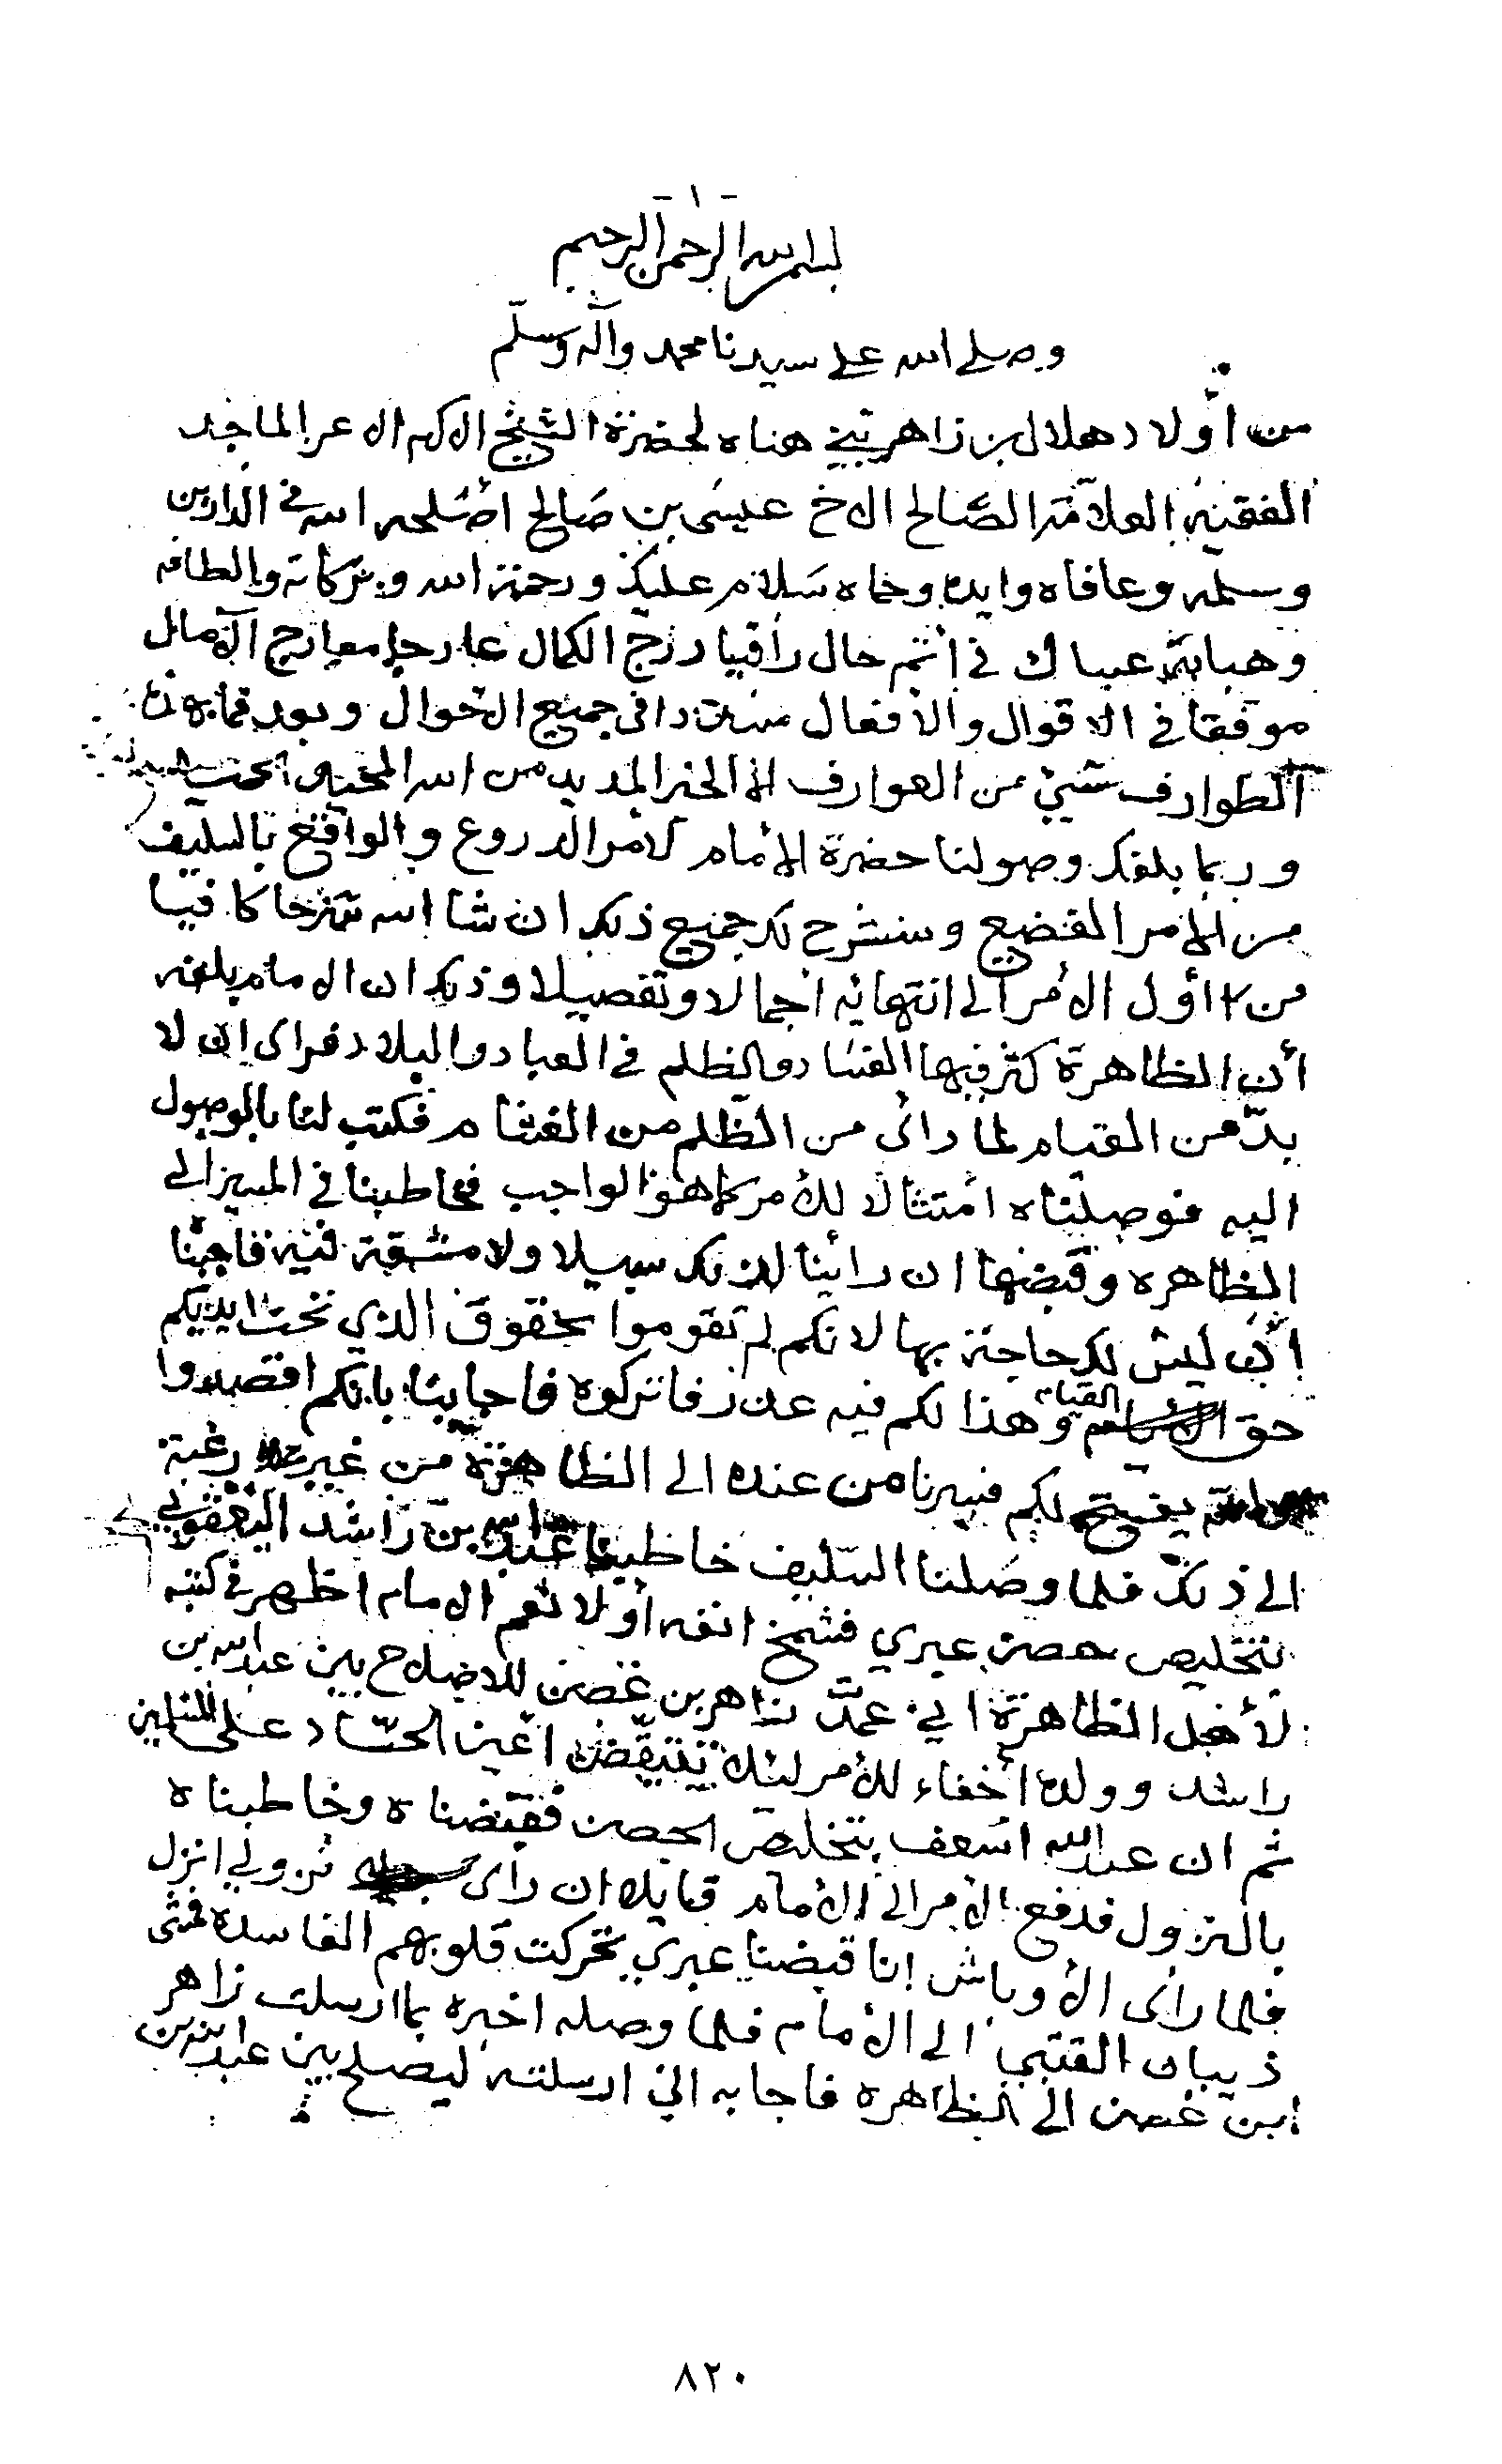 - ١ -
بسم الله الرحمن الرحيم
وصلى الله على سيدنا محمد وآله وسلم
من أولاد هلال بن زاهر بني هناه لحضرة الشيخ الاكرم الاعز الماجد
الفقيه العلامة الصالح الاخ عيسى بن صالح اصلحه الله في الدارين
وسلمه وعافاه وايده وحماه سلام عليك ورحمة الله وبركاته والطافه
وهباته عساك في أتم حال راقيا درج الكمال عارجا معارج الآمال
موفقا في الاقوال والأفعال في جميع الاحوال وبعد فما بهذه
الطوارف شيئ من العوارف الا الخير المديد من الله
وربما بلغك وصولنا حضرة الامام لأمر الدروع والواقع بالسليف
من الامر الفضيع وسنشرح لك جميع ذلك ان شا الله شرحا كافيا
من أول الأمر الى انتهائه اجمالا وتفصيلا وذلك ان الامام بلغه
أن الظاهرة كثر فيها الفساد والظلم في العباد والبلاد فرأى ان لا
بدّ من القيام لما رأى من الظلم من الغشام فكتب لنا بالوصول
اليه فوصلناه امتثالا للأمر كما هو الواجب فخاطبنا في المسير الى
الظاهره وقبضها ان رائنا لذلك سبيلا ولا مشقة فيه فاجبنا
أن ليس لك حاجة بها لانكم لم تقوموا بحقوق الذي تحت ايديكم
حق القيام وهذا لكم فيه عذر فاتركوه فاجابنا بانكم اقصدوا
والله يفتح لكم فسيرنا من عنده الى الظاهرة من غير رغبة
الى ذلك فلما وصلنا السليف خاطبنا عبد الله بن راشد اليعقوبي
بتخليص حصن عبري فشمخ انفه أولا ثم الامام اظهر في كتبه
لأهل الظاهرة اني عمدت زاهر بن غصن للاصلاح بين عبدالله بن
راشد وولده أخفاء للأمر ليلا تتيقض اعين الحساد على
ثم ان عبدالله اسعف بتخليص الحصن فقبضناه وخاطبناه
بالنزول فدفع الأمر الى الامام قايلا ان رأى نزولي انزل
فلما رأى الأوباش إنا قبضنا عبري تحركت قلوبهم الفاسده فمشى
ذيبان القتبي الى الأمام فلما وصله اخبره بما ارسلت زاهر
ابن غصن الى الظاهره فاجابه اني ارسلته ليصلح بين عبدالله بن
٨٢٠